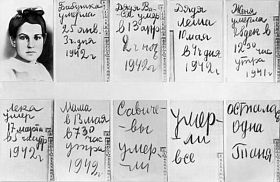 Бабушка
умерла
25 янв.
3 ч. дня
1942 г.
Дядя Вася
умер
в 13 апр
2 ч ноч
1942 г
Дядя
Леша
10 мая
в 4 ч дня
1942 г
Женя
умерла
28 дек в
12 30 час
утра
1941 г
Лека
умер
17 марта
1942 г
Мама
в 13 мая
в 7 30
час утра
1942 г
Савиче-
вы
умер-
ли
умер-
ли
все
осталась
одна
Таня